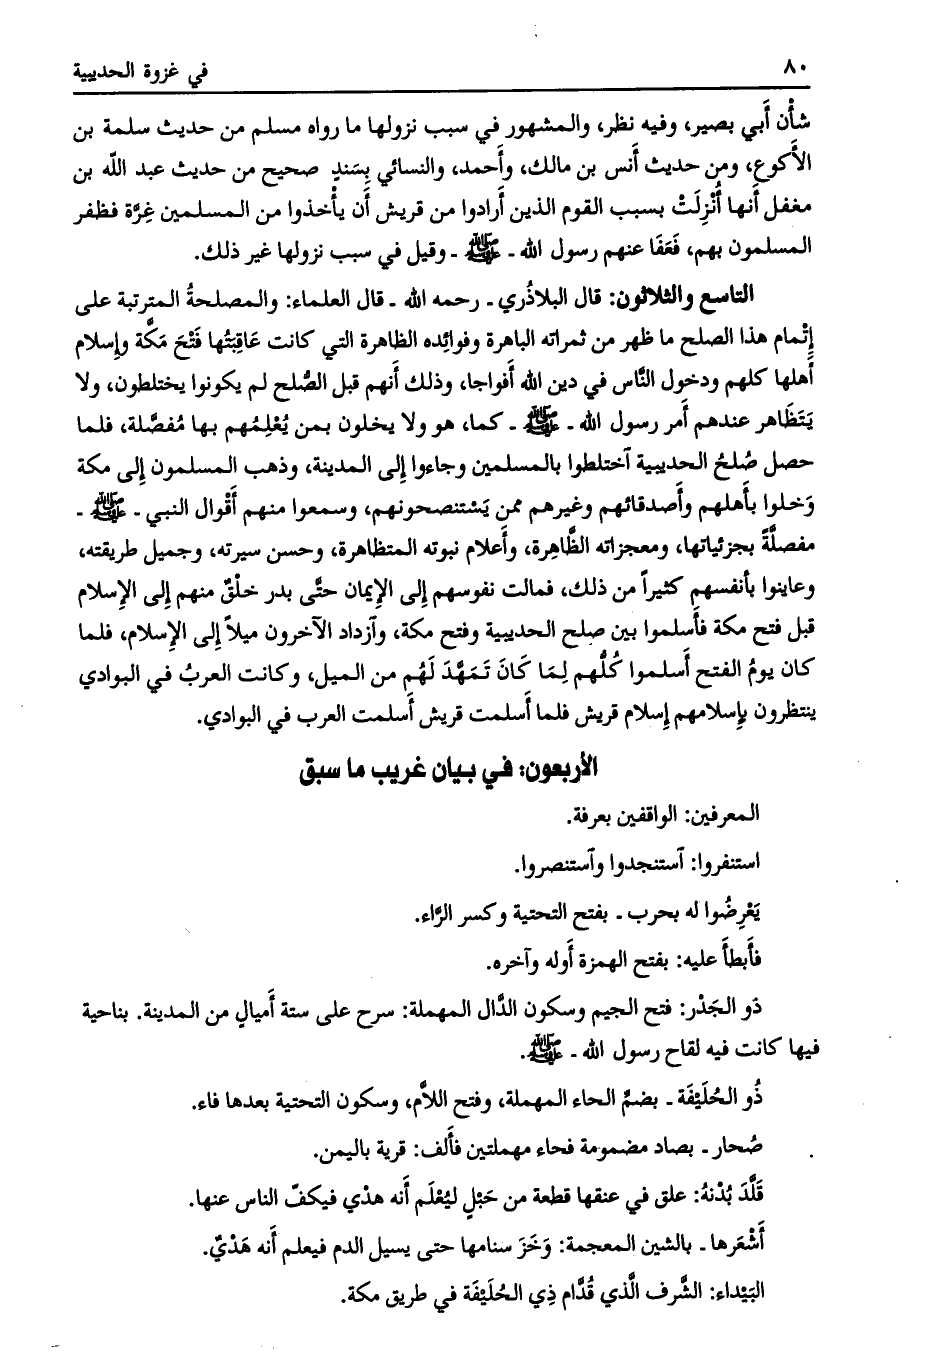 ٨٠ في غزوة الحديبية
شأْن أَبي بصير، وفيه نظر، والمشهور في سبب نزولها ما رواه مسلم من حديث سلمة بن
الأَكوع، ومن حديث أَنس بن مالك، وأَحمد، والنسائي بِسَندٍ صحيح من حديث عبد اللّه بن
مغفل أَنها أُنْزِلَتْ بسبب القوم الذين أَرادوا من قريش أَن يأْخذوا من المسلمين غِرَّة فظفر
المسلمون بهم، فَعَفَا عنهم رسول الله ـ ﷺ ـ وقيل في سبب نزولها غير ذلك.
التاسع والثلاثون: قال البلاذُري ـ رحمه الله ـ قال العلماء: والمصلحةُ المترتبة على
إِتْمام هذا الصلح ما ظهر من ثمراته الباهرة وفوائده الظاهرة التي كانت عَاقِبَتُها فَتْحَ مَكَّة وإِسلام
أَهلها كلهم ودخول النَّاس في دين الله أَفواجا، وذلك أَنهم قبل الصُّلح لم يكونوا يختلطون، ولا
يَتَظَاهر عندهم أَمر رسول الله ـ ﷺ ـ كما، هو ولا يخلون بمن يُعْلِمُهم بها مُفصَّلة، فلما
حصل صُلحُ الحديبية آختلطوا بالمسلمين وجاءوا إِلى المدينة، وذهب المسلمون إِلى مكة
وَخلوا بأَهلهم وأَصدقائهم وغيرهم ممن يَسْتنصحونهم، وسمعوا منهم أَقْوال النبي ـ ﷺ ـ
مفصلَّةً بجزئياتها، ومعجزاته الظَّاهِرة، وأَعلام نبوته المتظاهرة، وحسن سيرته، وجميل طريقته،
وعاينوا بأَنفسهم كثيراً من ذلك، فمالت نفوسهم إِلى الإِيمان حتَّى بدر خلْقٌ منهم إِلى الإِسلام
قبل فتح مكة فأَسلموا بين صلح الحديبية وفتح مكة، وآزداد الآخرون ميلاً إِلى الإِسلام، فلما
كان يومُ الفتح أَسلموا كُلُّهم لِمَا كَانَ تَمَهَّدَ لَهُم من الميل، وكانت العربُ في البوادي
ينتظرون بإِسلامهم إِسلام قريش فلما أَسلمت قريش أَسلمت العرب في البوادي.
الأربعون: في بيان غريب ما سبق
المعرفين: الواقفين بعرفة.
استنفروا: آستنجدوا وآستنصروا.
يَعْرِضُوا له بحرب ـ بفتح التحتية وكسر الرَّاء.
فأَبطأَ عليه: بفتح الهمزة أَوله وآخره.
ذو الجَدْر: فتح الجيم وسكون الدَّال المهملة: سرح على ستة أَميالٍ من المدينة. بناحية
فيها كانت فيه لقاح رسول الله ـ ﷺ.
ذُو الحُلَيْفَة ـ بضمِّ الحاء المهملة، وفتح اللاَّم، وسكون التحتية بعدها فاء.
صُحار ـ بصاد مضمومة فحاء مهملتين فأَلف: قرية باليمن.
قَلَّدَ بُدْنهُ: علق في عنقها قطعة من حَبْلٍ ليُعْلَم أَنه هدْي فيكفّ الناس عنها.
أَشْعَرها ـ بالشين المعجمة: وَخَزَ سنامها حتى يسيل الدم فيعلم أَنه هَدْيٌ.
البَيْداء: الشَّرف الَّذي قُدَّام ذِي الحُلَيْفَة في طريق مكة.